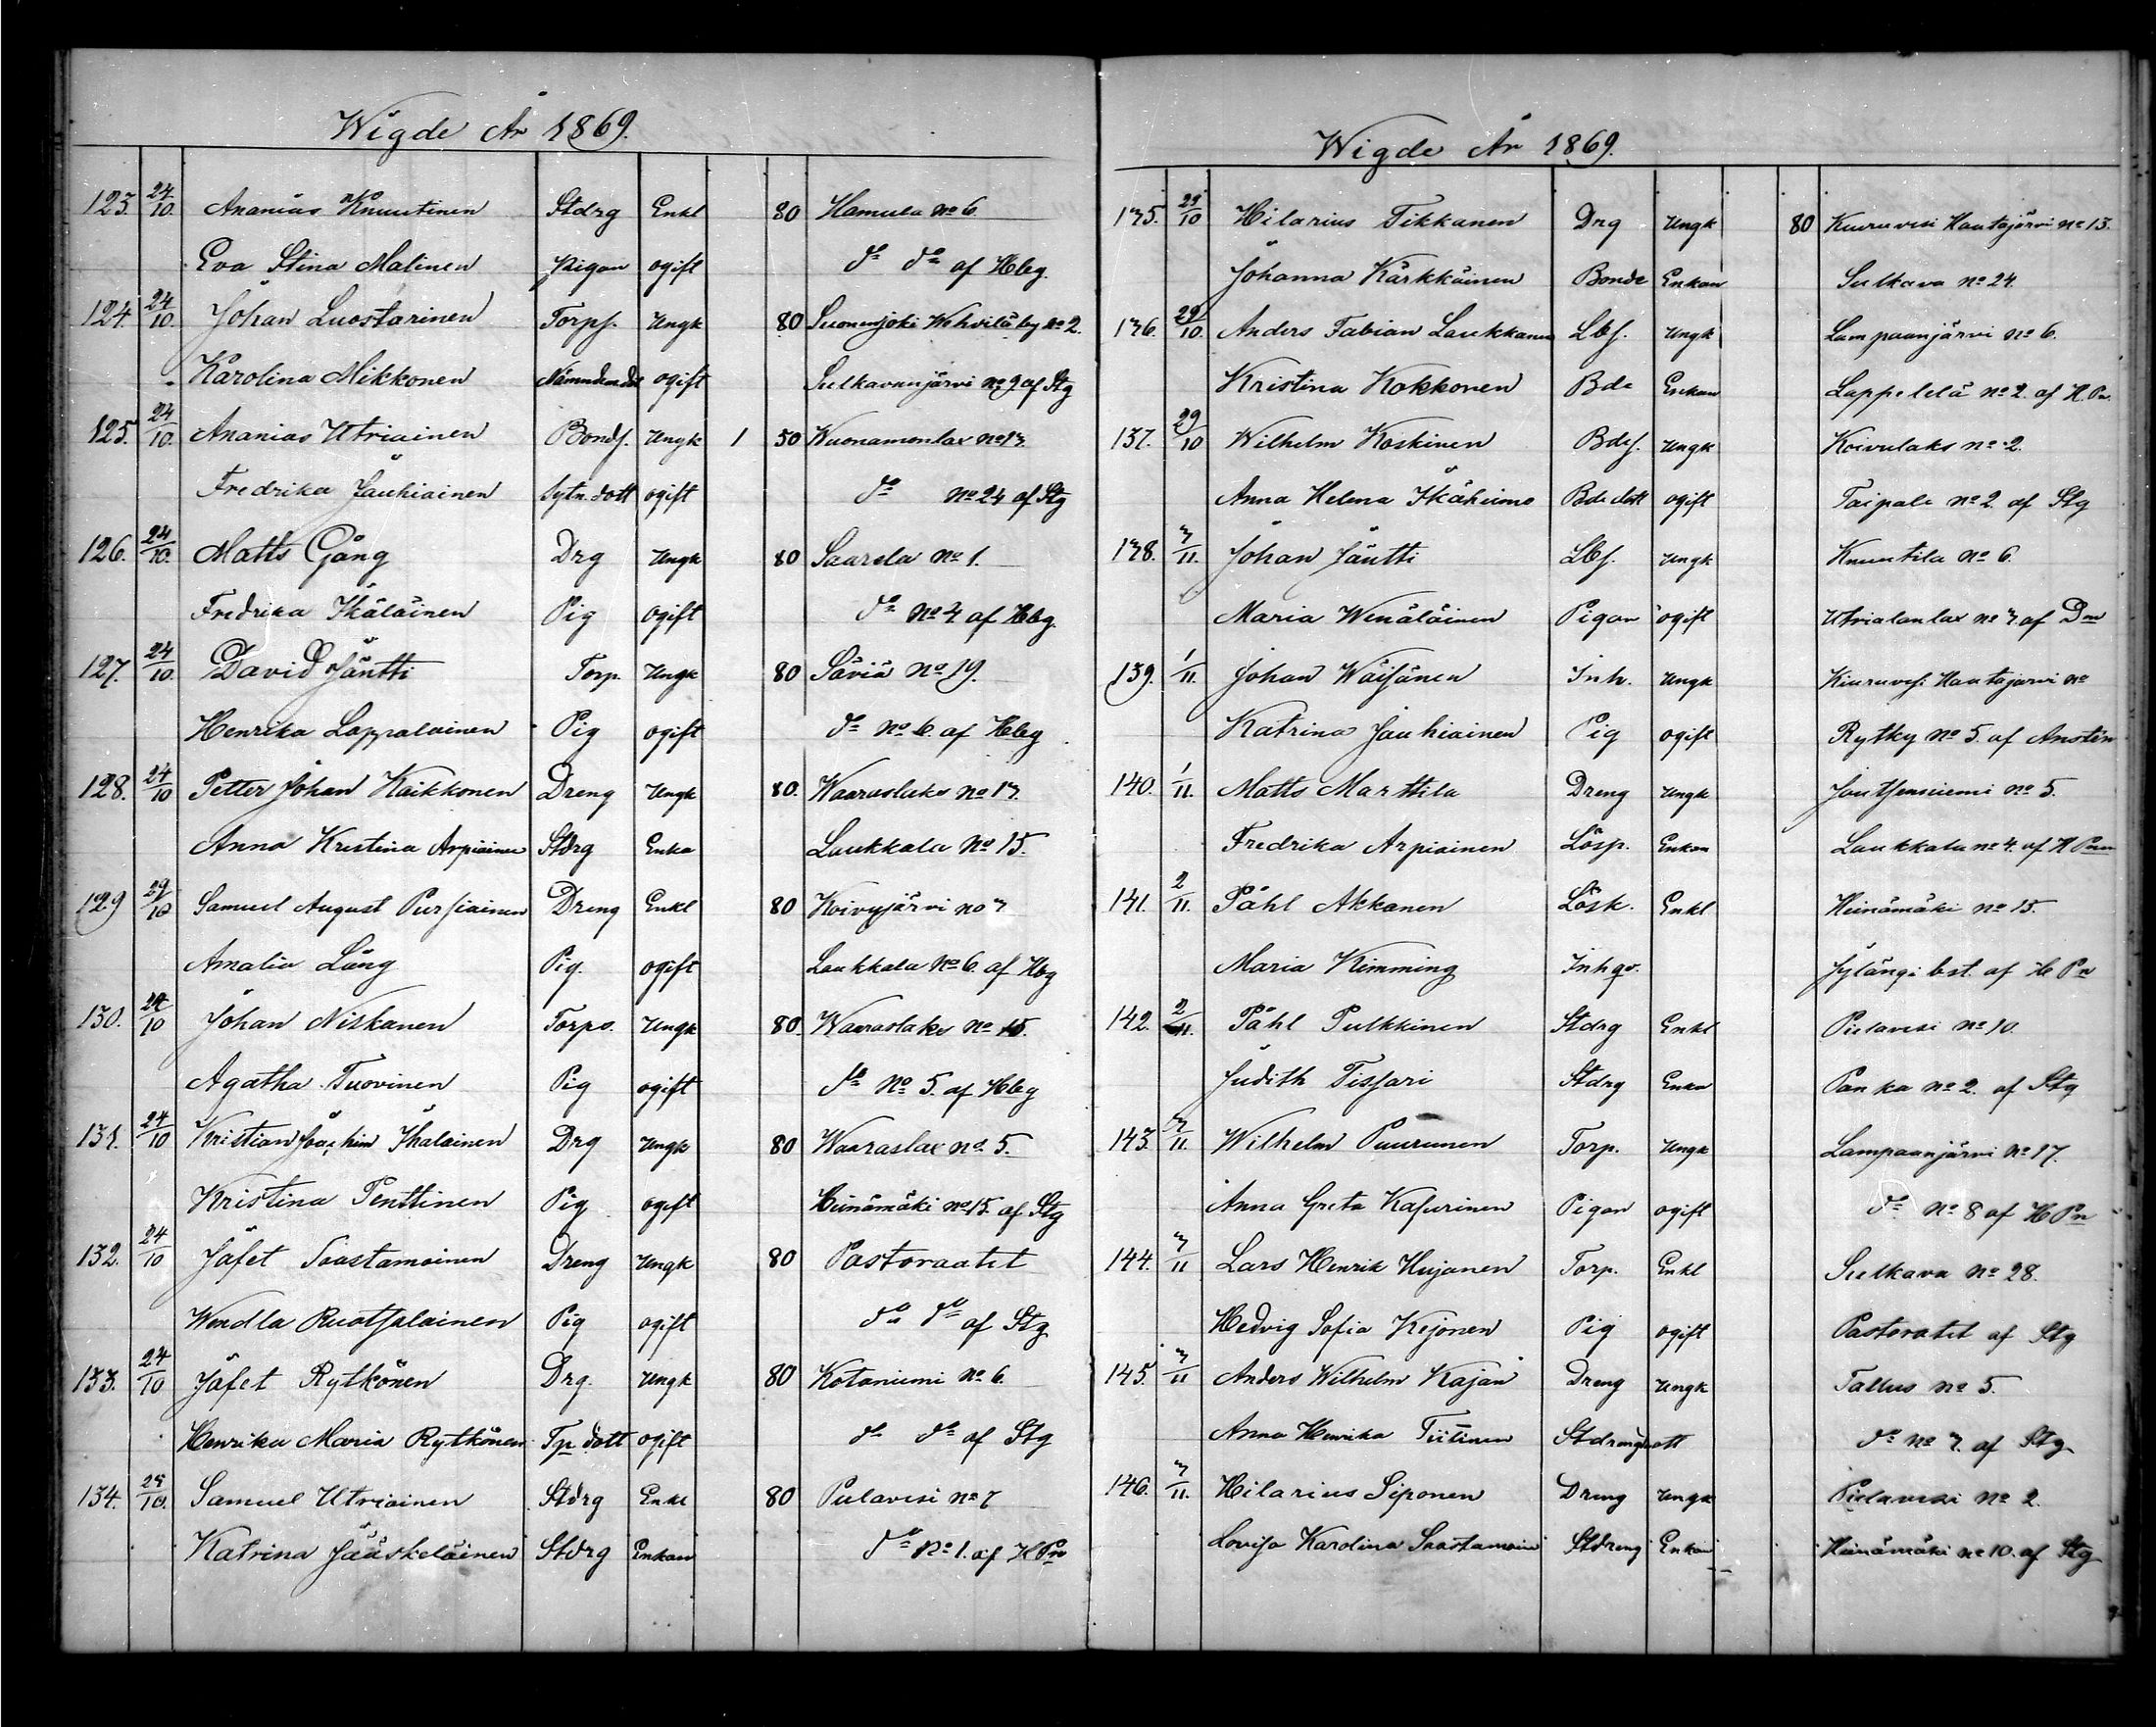 Wigde År 1869.
123. 24/10. Ananias Knuutinen Stdrg Enkl 80 Hamula No 6.
Eva Stina Malinen Pigan ogift do do af Hbg.
124. 24/10. Johan Luostarinen Torps. Ungk 80 Suonenjoki Wehvilä by No 2.
Karolina Mikkonen ogift Sulkavanjärvi No 9 af Stg
125. 24/10. Ananias Utriainen Bonds. Ungk 1 50 Wuonamonlax No 13.
Fredrika Jauhiainen Sytn. dott ogift do No 24 af Stg
126. 24/10. Matts Gång Drg Ungk 80 Saarela No 1.
Fredrika Ikäläinen Pig ogift do No 4 af Hbg.
127. 24/10. David Jäntti Torp. Ungk 80 Säviä No 19.
Henrika Lappalainen Pig ogift do No 6. af Hbg
128. 24/10 Petter Johan Kaikkonen Dreng Ungk 80. Waaraslaks No 13.
Anna Kristina Arpiainen Stdrg Enka Laukkala No 15.
129 29/10 Samuel August Pursiainen Dreng Enkl 80 Koivujärvi No 3
Amalia Lång Pig. ogift Laukkala No 6. af Hbg
130. 24/10 Johan Niskanen Torps. Ungk 80. Waaraslaks No 15.
Agatha Tuovinen Pig ogift do No 5. af Hbg
131. 24/10 Kristian Joachim Ihalainen Drg Ungk 80 Waaraslax No 5.
Kristina Penttinen Pig ogift Heinämäki No 15. af Stg
132. 24/10 Jafet Saastamoinen Dreng Ungk 80 Pastoraatet
Wendla Ruotsalainen Pig ogift do do af Stg
133. 24/10 Jafet Rytkönen Drg. Ungk 80 Kotaniemi No 6.
Henrika Maria Rytkönen Tp dott ogift do do af Stg
134. 25/10. Samuel Utriainen Stdrg Enkl 80 Pielavesi No 7
Katrina Jääskeläinen Stdrg Enkan do No 1. af H Pn
Wigde År 1869.
135. 25/10 Hilarius Tikkanen Drg Ungk 80 Kiuruvesi Hautajärvi No 13.
Johanna Kärkkäinen Bonde Enkan Sulkava No 24.
136. 29/10. Anders Fabian Laukkanen Lbs. Ungk Lampaanjärvi No 6.
Kristina Kokkonen Bde Enkan Lappetelä No 2. af H. Pn.
137. 29/10 Wilhelm Koskinen Bdes. Ungk Koivulaks No 2.
Anna Helena Ikäheimo Bde dott ogift Taipale No 2. af Stg
138. 3/11. Johan Jäntti Lbs. Ungk Knuutila No 6.
Maria Wenäläinen Pigan ogift Utrialanlax No 3 af Dm
139. 1/11. Johan Wäisänen Inh. Ungk Kiuruvesi Hautajarvi No
Katrina Jauhiainen Pig ogift Rytky No 5. af
140. 1/11. Matts Marttila Dreng Ungk Joutsenniemi No 5.
Fredrika Arpiainen Lösp. Enkan Laukkala No 4. af H Pnn
141. 2/11. Påhl Akkanen Lösk. Enkl Heinämäki No 15.
Maria Kemming Inhqv. Jylängi bst. af H Pn
142. 2/11. Påhl Pulkkinen Stdrg Enkl Pielavesi No 10.
Judith Tissari Stdrg Enka Panka No 2. af Stg
143. 3/11. Wilhelm Puurunen Torp. Ungk Lampaanjärvi No 17.
Anna Greta Kasurinen Pigan ogift do No 8 af H Pn
144. 3/11 Lars Henrik Hujanen Torp. Enkl Sulkava No 28.
Hedvig Sofia Kejonen Pig ogift Pastoratet af Stg
145. 3/11 Anders Wilhelm Kajan Dreng Ungk Tallus No 5.
Anna Henrika Tiitinen Stdrengdott do No 7. af Stg
146. 3/11. Hilarius Siponen Dreng Ungk Pielavesi No 2.
Lovisa Karolina Saastamoin Stdreng Enkan Heinämäki No 10. af Stg